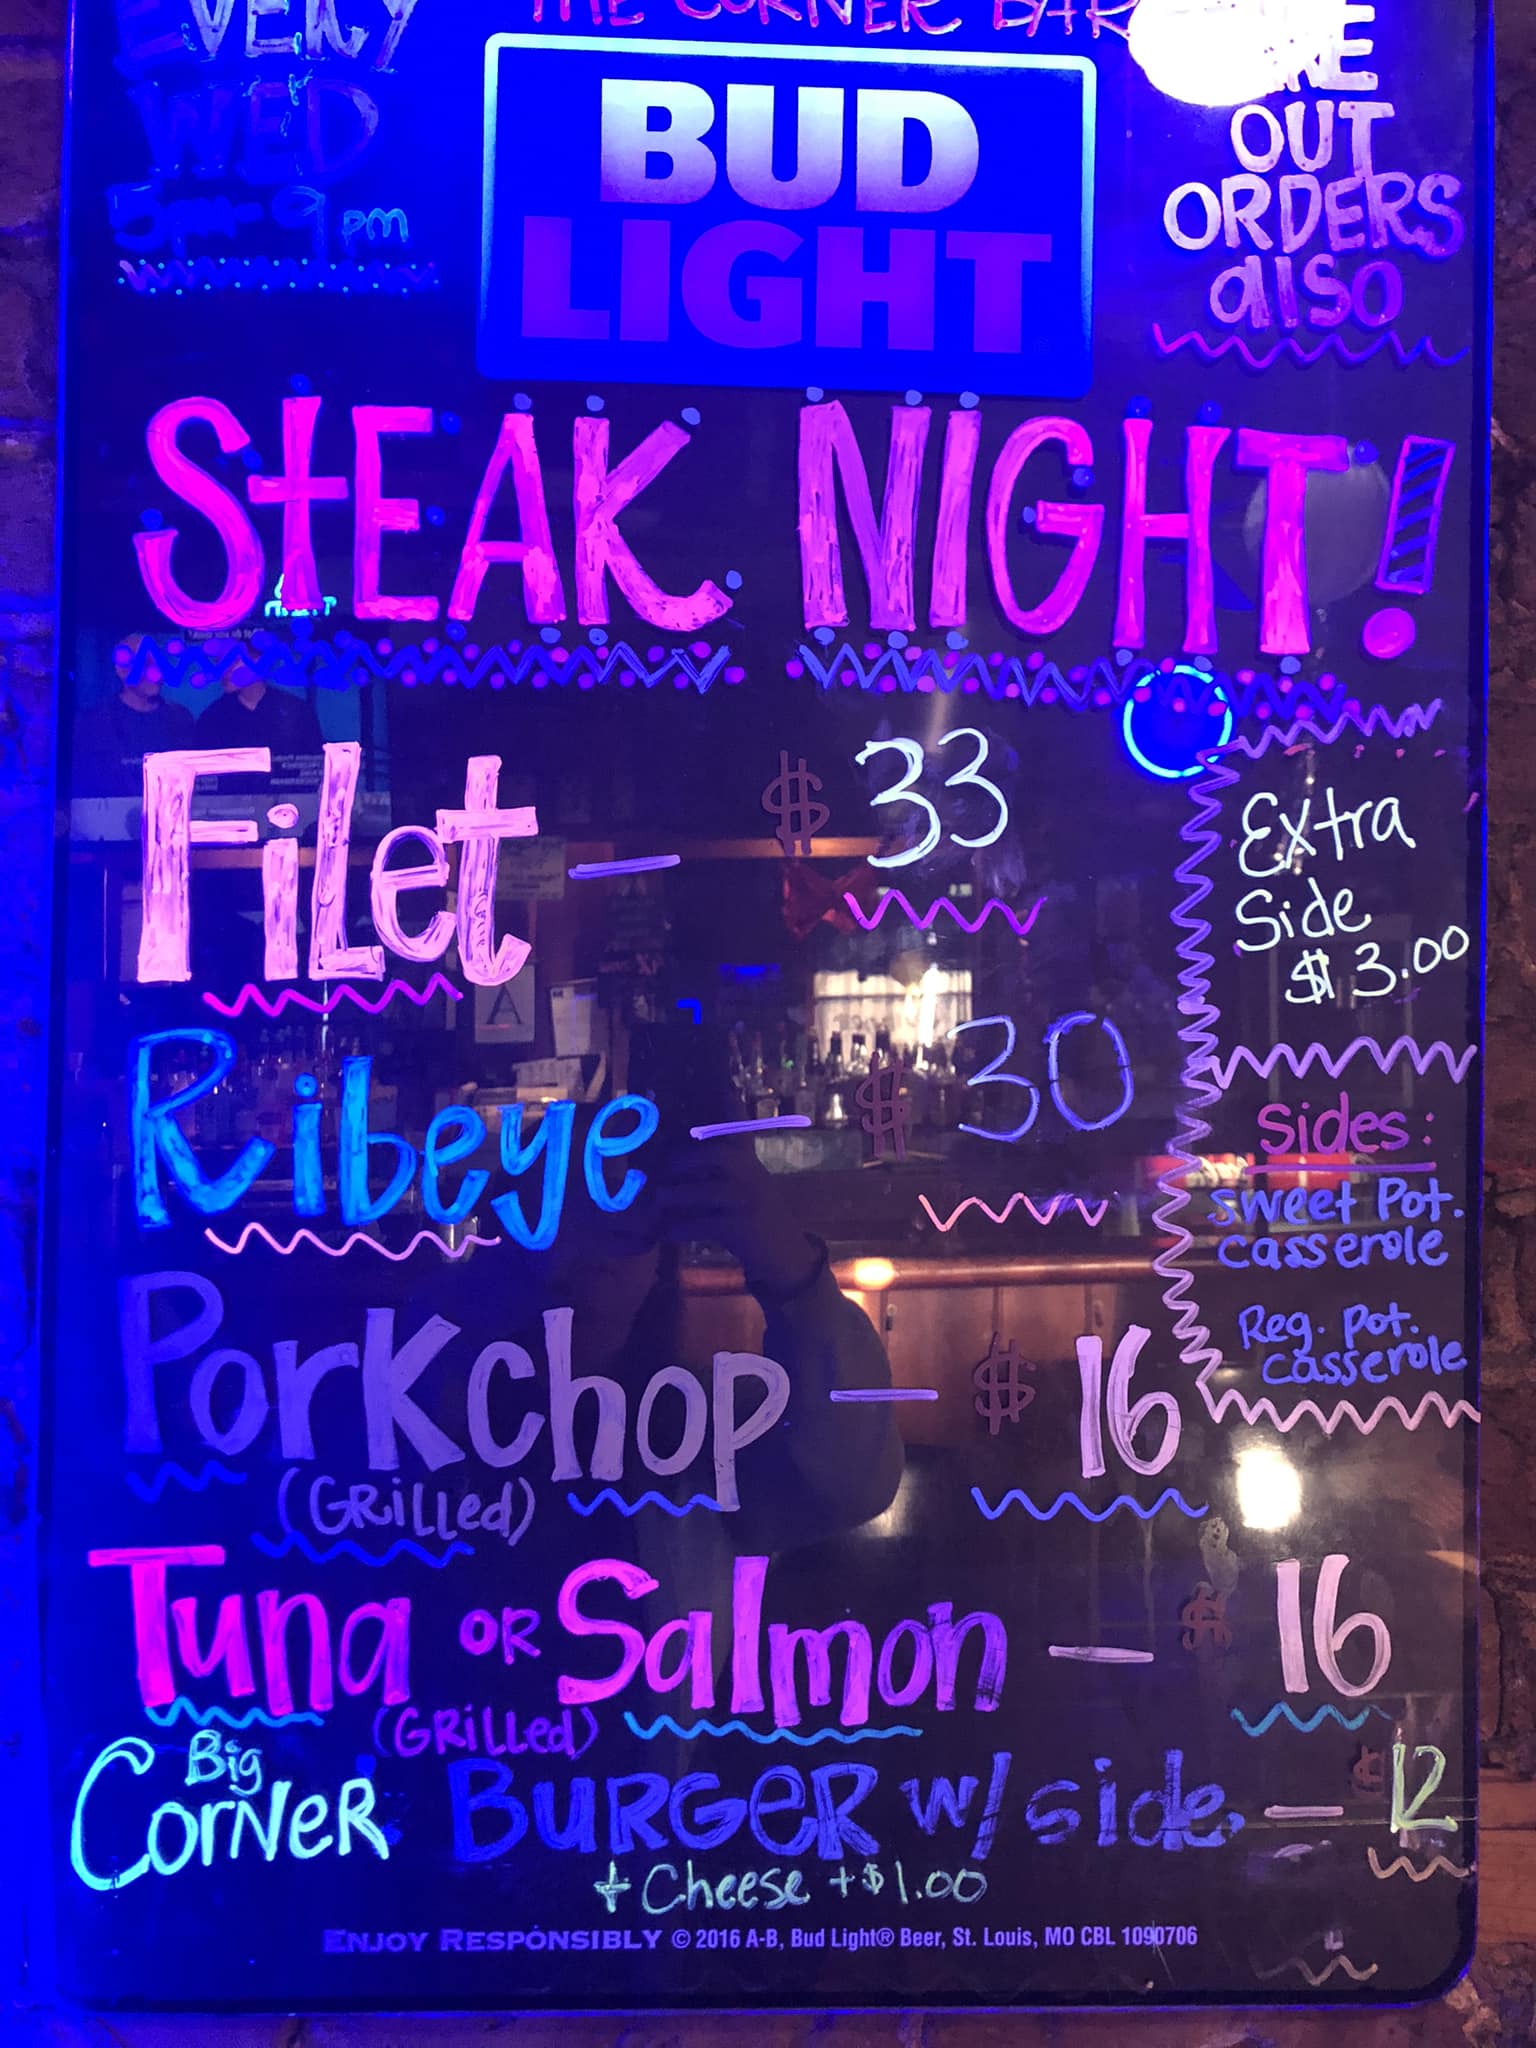 EVERY
WED
5pm-9pm
THE CORNER BAR
BUD
LIGHT
OUT
ORDERS
also
STEAK NIGHT!
Filet — $ 33
Ribeye — $ 30
Porkchop — $ 16
(GRilled)
Tuna OR Salmon — $ 16
(GRilled)
Big
CorNeR BURGeR w/ side — $12
+ Cheese +$1.00
Extra
Side
$ 3.00
Sides:
Sweet Pot.
casserole
Reg. Pot.
casserole
ENJOY RESPONSIBLY © 2016 A-B, Bud Light® Beer, St. Louis, MO CBL 1090706